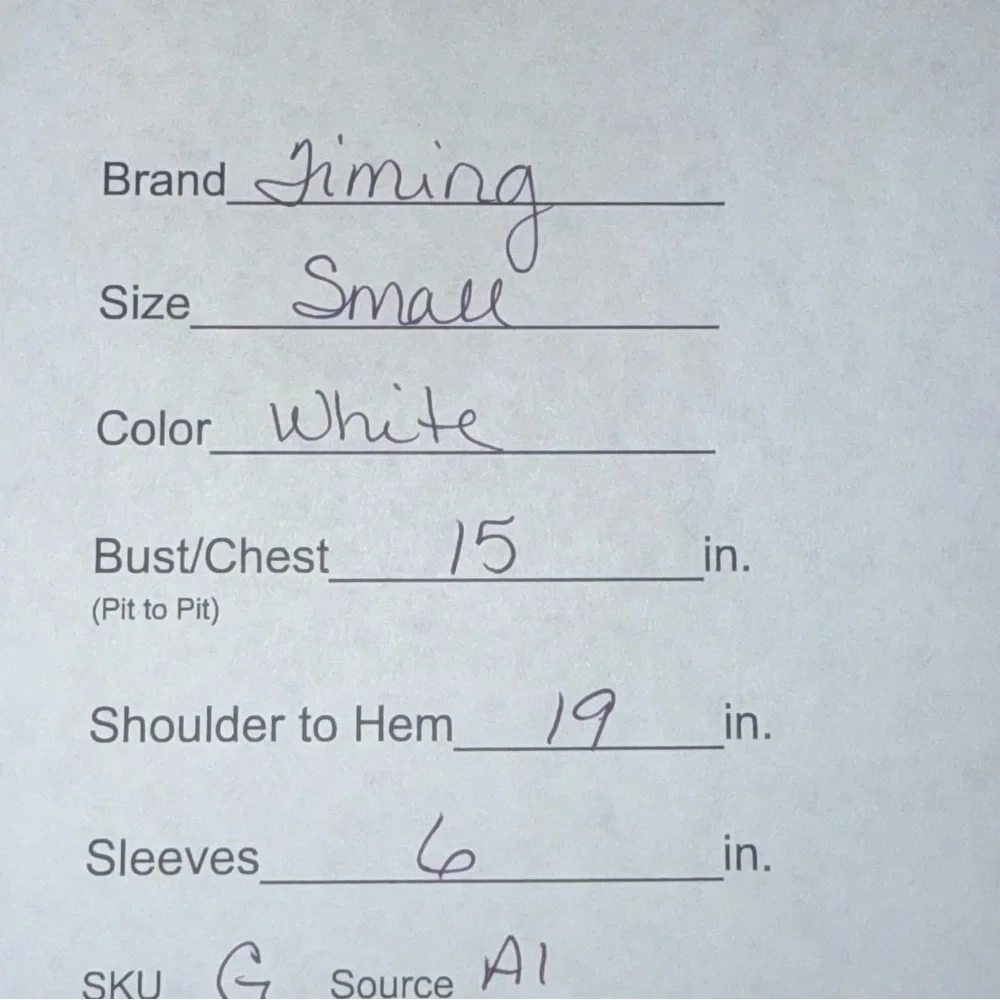 Brand Timing
Size Small
Color White
Bust/Chest 15 in.
(Pit to Pit)
Shoulder to Hem 19 in.
Sleeves 6 in.
SKU G Source A1